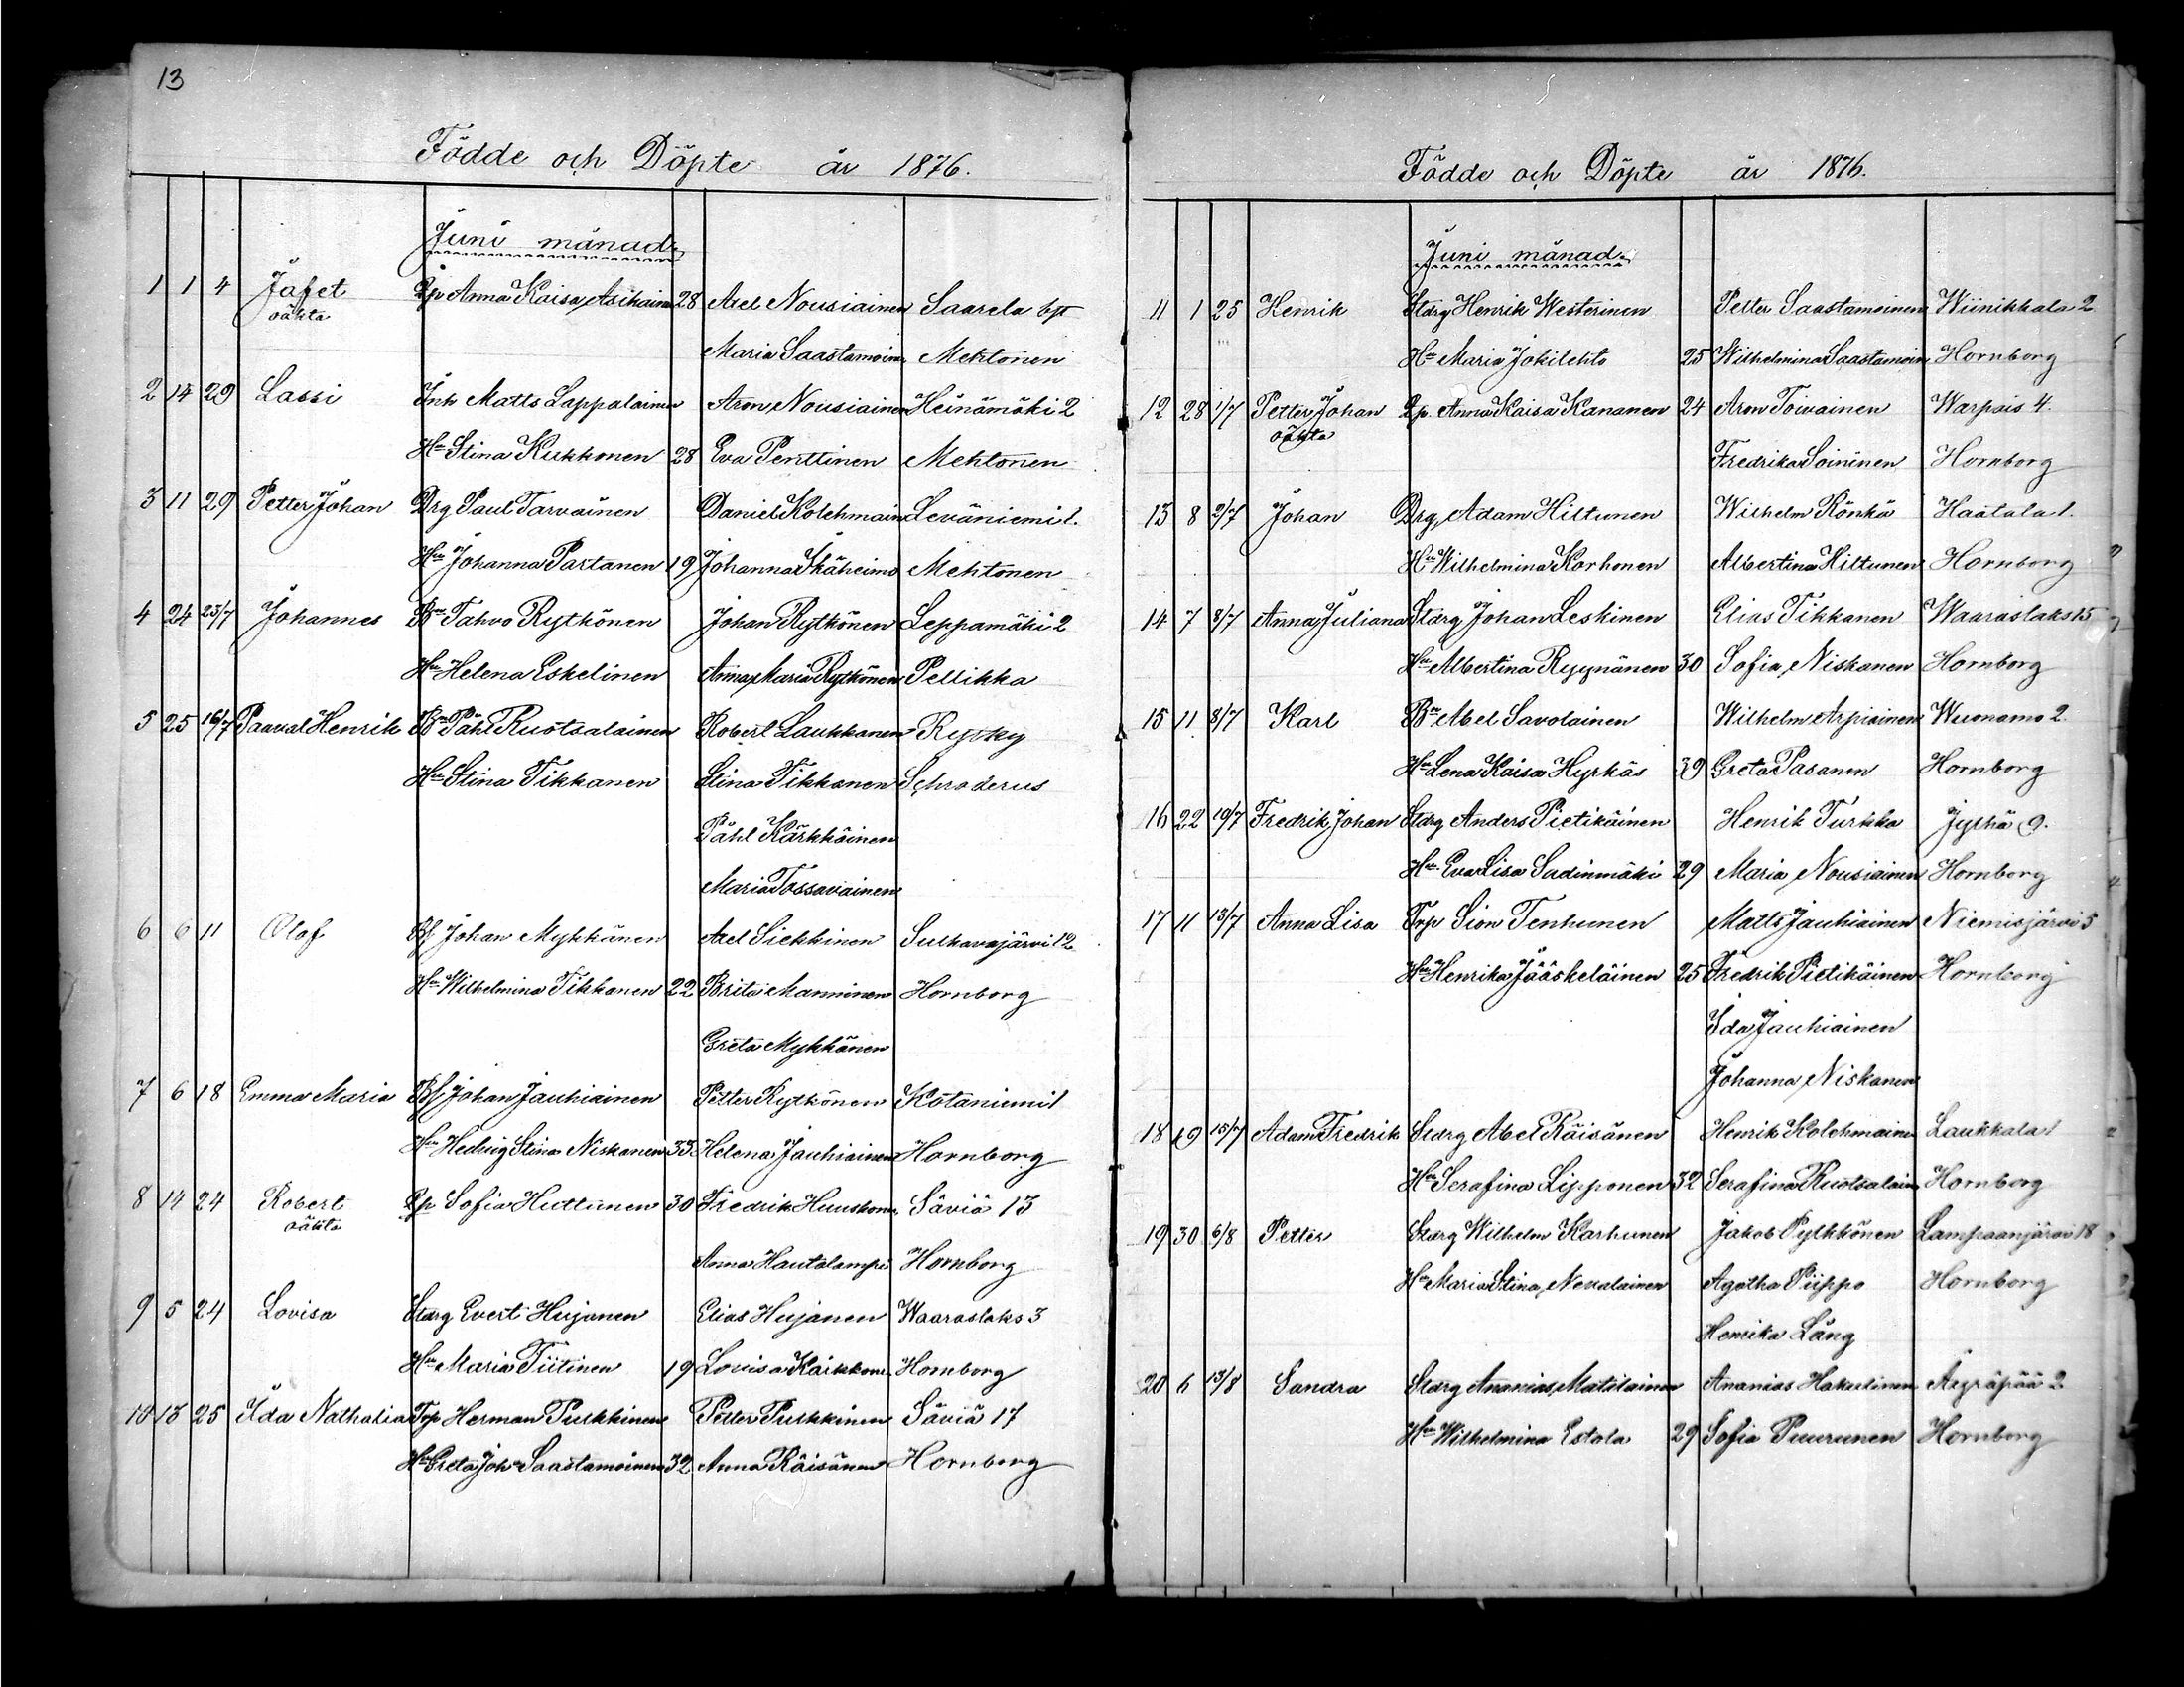 13
Födde och Döpte år 1876.
Juni månad.
1 1 4 Jafet Qp Anna Kaisa Asikain 28 Axel Nousiainen Saarela bst
oäkta
Maria Saastamoin Mehtonen
2 14 29 Lassi Inh Matts Lappalainen Aron Nousiainen Heinämäki 2
Hn Stina Kukkonen 28 Eva Penttinen Mehtonen
3 11 29 Petter Johan Drg Paul Tarvainen Daniel Kolehmain Leväniemi 1.
Hn Johanna Partanen 19 Johanna Ikäheimo Mehtonen
4 24 23/7 Johannes Bn Tahvo Rytkönen Johan Rytkönen Leppamäki 2
Hn Helena Eskelinen Anna Maria Rytkönen Pellikka
5 25 16/7 Paaval Henrik Bn Påhl Ruotsalainen Robert Laukkanen Rysky
Hn Stina Tikkanen Stina Tikkanen Schroderus
Påhl Kärkkäinen
Maria Tossavainen
6 6 11 Olof Bf Johan Mykkänen Axel Siekkinen Sulkavajärvi 12
Hn Wilhelmina Tikkanen 22 Brita Manninen Hornborg
Greta Mykkänen
7 6 18 Emma Maria Bf Johan Jauhiainen Petter Rytkönen Kotaniemi 1
Hn Hedvig Stina Niskanen 33 Helena Jauhiainen Hornborg
8 14 24 Robert Qp Sofia Huttunen 30 Fredrik Huuskon Säviä 13
oäkta
Anna Hautalampi Hornborg
9 5 24 Lovisa Stdrg Evert Hujanen Elias Hujanen Waaraslaks 3
Hn Maria Tiitinen 19 Lovisa Kaikkone Hornborg
10 13 25 Ida Nathalia Trp Herman Pulkkinen Petter Pulkkinen Säviä 17
Hn Greta Joh:a Saastamoinen 32 Anna Räisänen Hornborg
Födde och Döpte år 1876.
Juni månad.
11 1 25 Henrik Stdrg Henrik Westerinen Petter Saastamoinen Wiinikkala 2
Hn Maria Jokilehto 25 Wilhelmina Saastamoin Hornborg
12 28 1/7 Petter Johan Qp. Anna Kaisa Kananen 24 Aron Toivainen Warpais 4.
oäkta
Fredrika Soininen Hornborg
13 8 2/7 Johan Drg Adam Hiltunen Wilhelm Rönkä Haatala 1.
Hn Wilhelmina Korhonen Albertina Hiltunen Hornborg
14 7 8/7 Anna Juliana Stdrg Johan Leskinen Elias Tikkanen Waaraslaks 15
Hn Albertina Ryynänen 30 Sofia Niskanen Hornborg
15 11 8/7 Karl Bn Abel Savolainen Wilhelm Arpiainen Wuonamo 2.
Hn Lena Kaisa Hyrkäs 39 Greta Pasanen Hornborg
16 22 10/7 Fredrik Johan Stdrg Anders Pietikäinen Henrik Turkka Jylhä 9.
Hn Eva Lisa Sadinmäki 29 Maria Nousiainen Hornborg
17 11 13/7 Anna Lisa Trp Sion Tenhunen Matts Jauhiainen Niemisjärvi 5
Hn Henrika Jääskeläinen 25 Fredrik Pietikäinen Hornborg
Ida Jauhiainen
Johanna Niskanen
18 19 15/7 Adam Fredrik Stdrg Abel Räisänen Henrik Kolehmaine Laukkala 1
Hn Serafina Lipponen 32 Serafina Ruotsalain Hornborg
19 30 6/8 Petter Stdrg Wilhelm Karhunen Jakob Pylkkönen Lampaanjärvi 18
Hn Maria Stina Nevalainen Agatha Piippo Hornborg
Henrika Lång
20 6 13/8 Sandra Stdrg Ananias Matilainen Ananias Hakulinen Äyräpää 2
Hn Wilhelmina Estola 29 Sofia Puurunen Hornborg